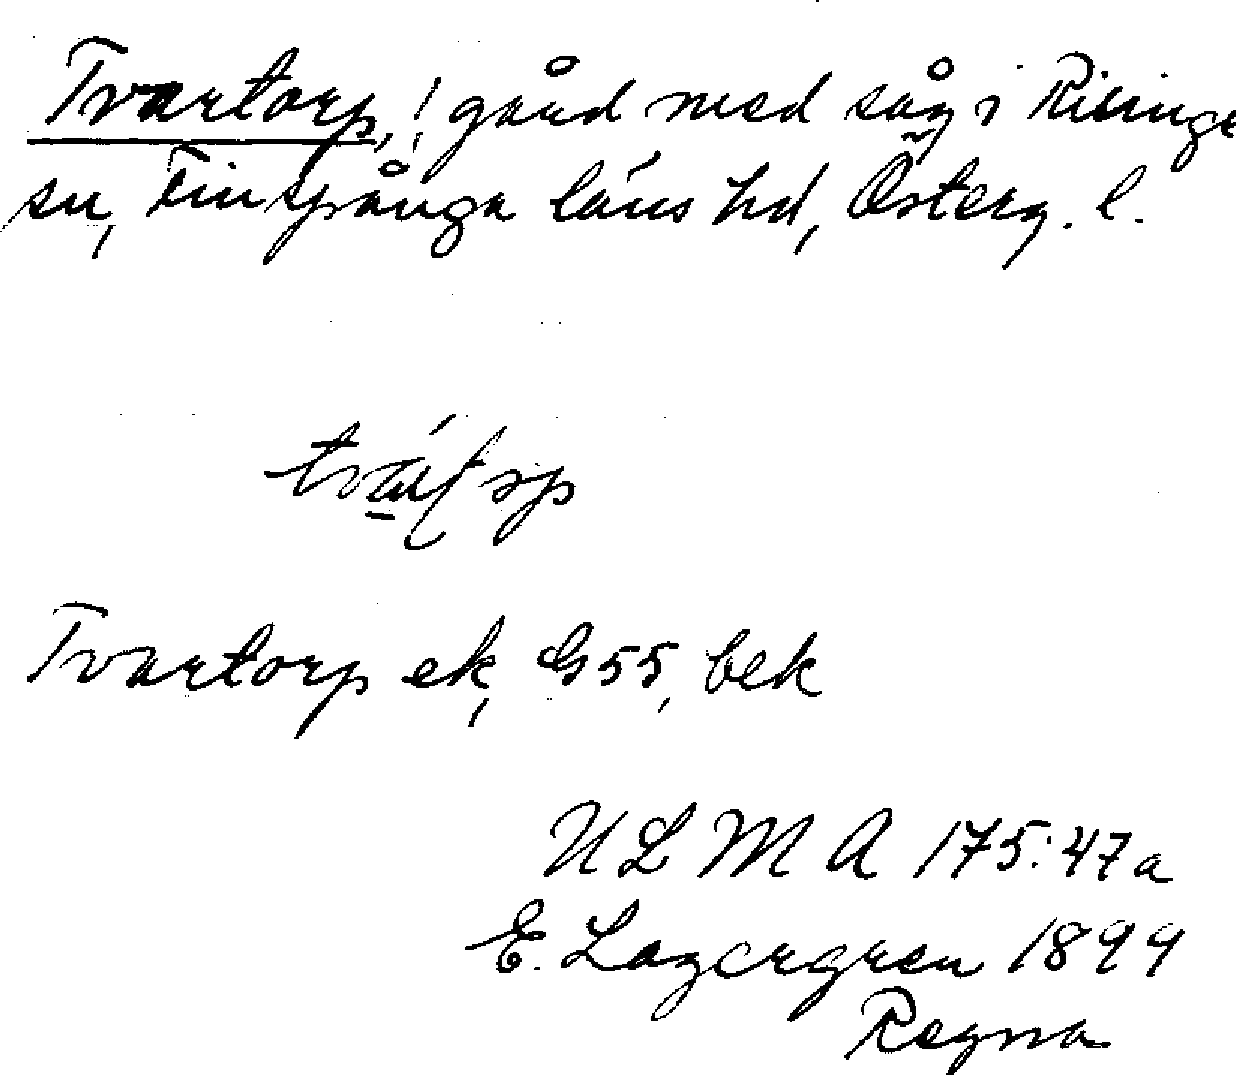 Tvartorp, ! gård med såg i Risinge
sn, Finspånga läns hd, Österg. l.
Tvartorp ek, G55, bek
ULMA 175:47a
E. Lagergren 1899
Regna